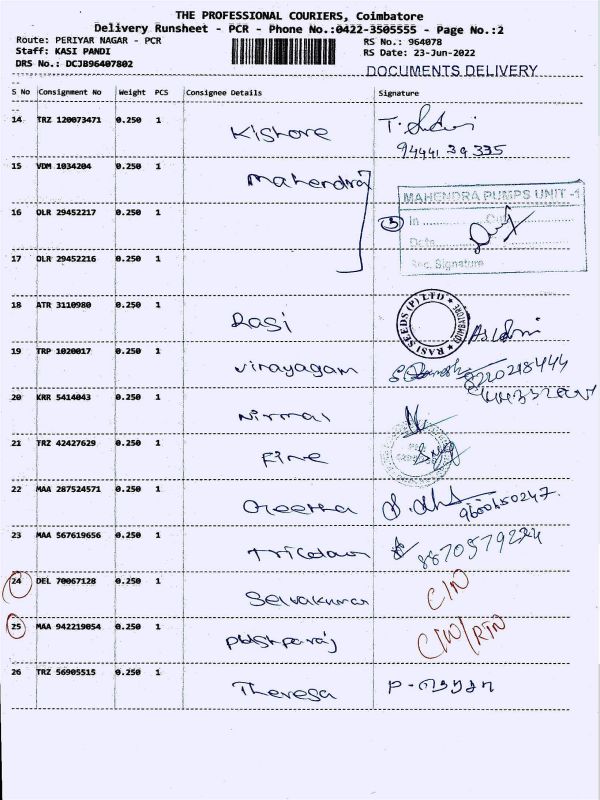 THE PROFESSIONAL COURIERS, Coimbatore
Delivery Runsheet - PCR - Phone No.:0422-3505555 - Page No.:2
Route: PERIYAR NAGAR - PCR RS No.: 964078
Staff: KASI PANDI RS Date: 23-Jun-2022
DRS No.: DCJB96407802
DOCUMENTS DELIVERY
S No Consignment No Weight PCS Consignee Details Signature
14 TRZ 120073471 0.250 1 Kishore
94441 39 335
15 VDM 1034204 0.250 1 Mahendra
MAHENDRA PUMPS UNIT -1
16 OLR 29452217 0.250 1 3 In Out
Date
17 OLR 29452216 0.250 1 Sec. Signature
18 ATR 3110980 0.250 1 Rasi RASI SEEDS (P) LTD COIMBATORE
19 TRP 1020017 0.250 1 Vinayagam 8220218444
20 KRR 5414043 0.250 1 Nirmal
21 TRZ 42427629 0.250 1 Fine
22 MAA 287524571 0.250 1 Geetha 9600650247
23 MAA 567619656 0.250 1
24 DEL 70067128 0.250 1 Selvakumar C/N
25 MAA 942219054 0.250 1 Pushparaj CN/RTN
26 TRZ 56905515 0.250 1 Theresa